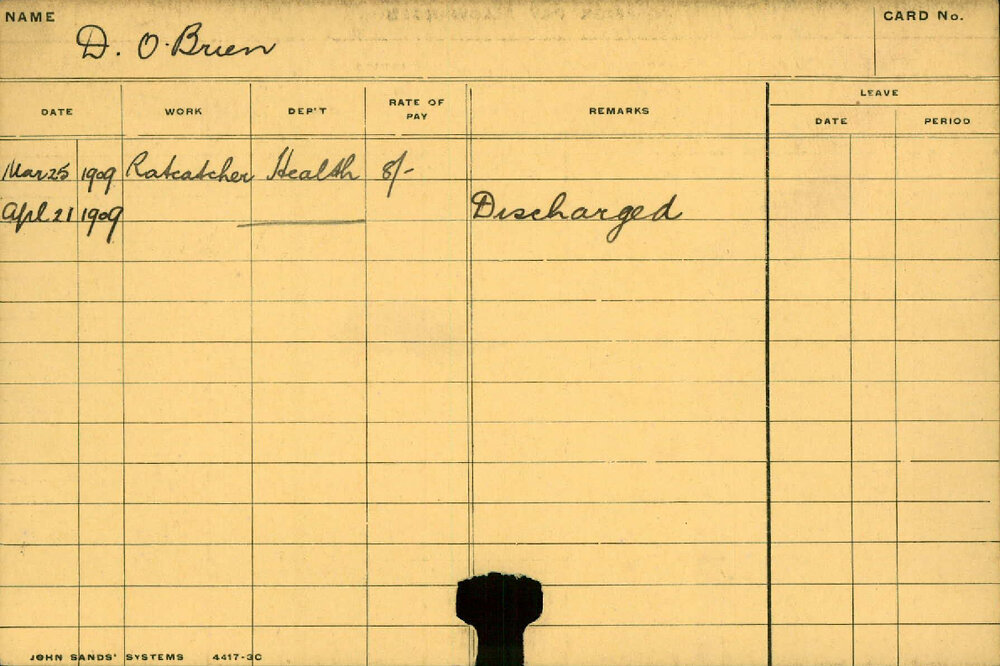 NAME D. O'Brien CARD No.
DATE WORK DEP'T RATE OF PAY REMARKS LEAVE
DATE PERIOD
Mar 25 1909 Ratcatcher Health 8/-
Apl 21 1909 Discharged
JOHN SANDS' SYSTEMS 4417-3C